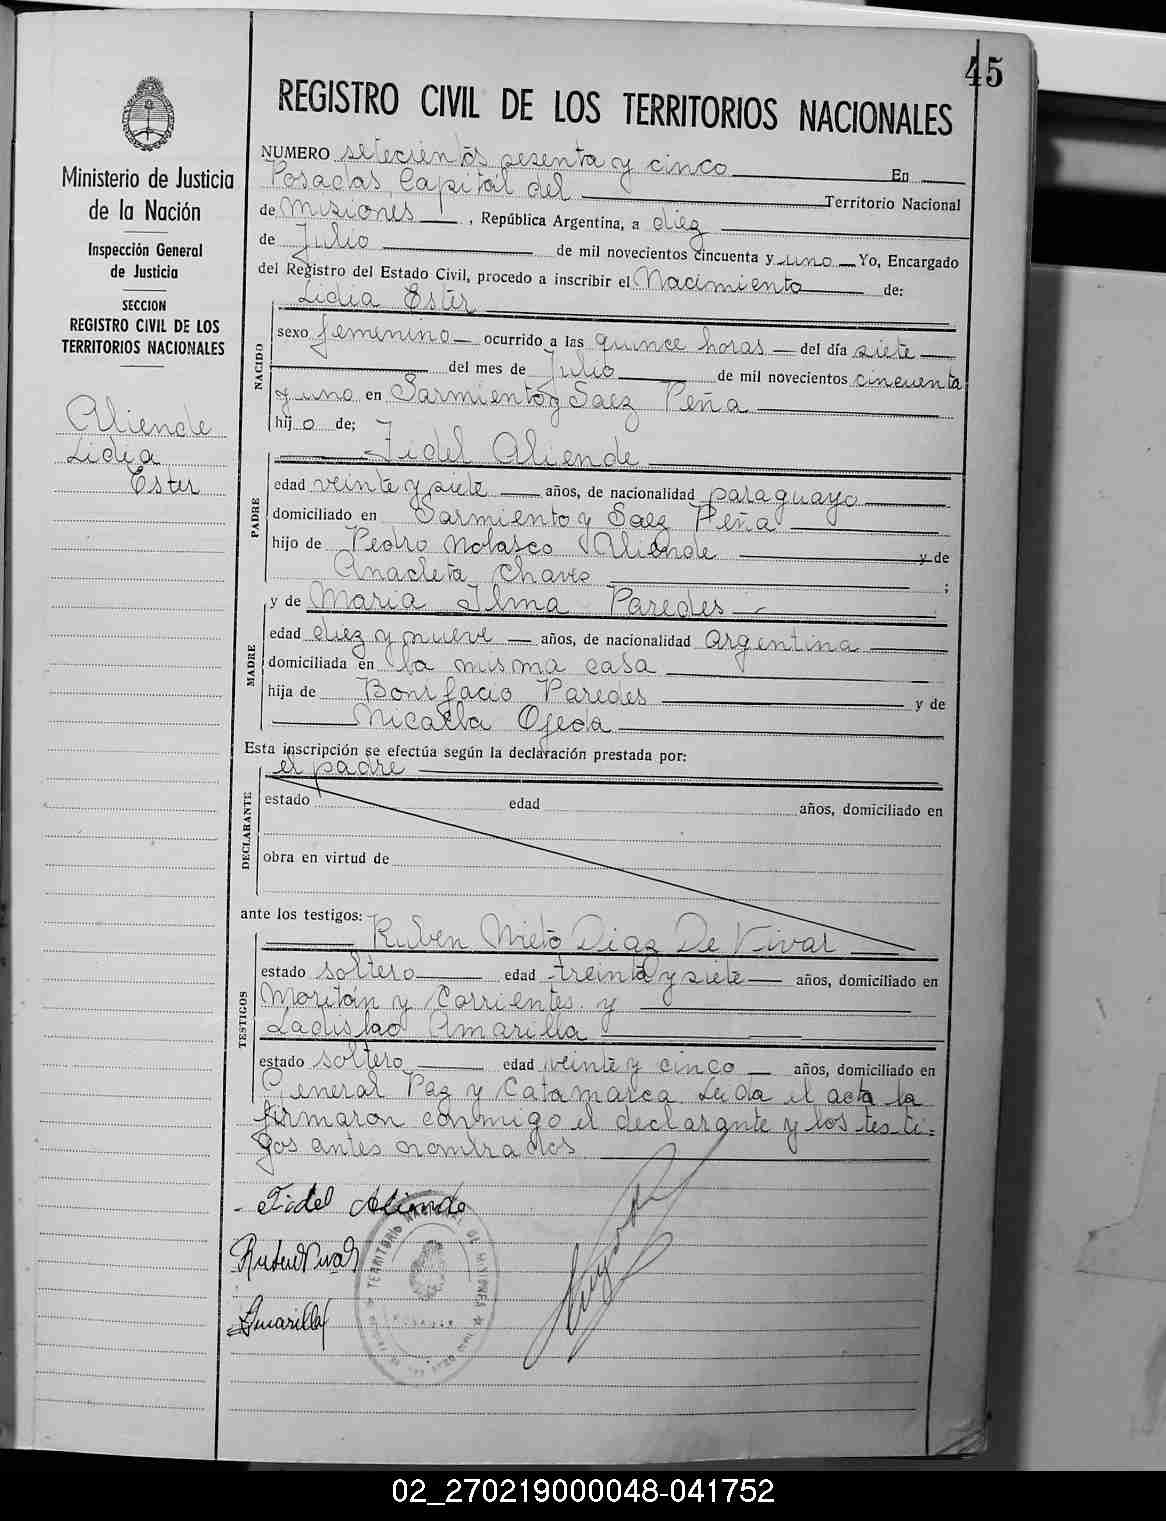 45
REGISTRO CIVIL DE LOS TERRITORIOS NACIONALES
Ministerio de Justicia
de la Nación
Inspección General
de Justicia
SECCION
REGISTRO CIVIL DE LOS
TERRITORIOS NACIONALES
Aliende
Lidia
Ester
NUMERO setecientos sesenta y cinco En
Posadas, Capital del Territorio Nacional
de Misiones, República Argentina, a diez
de Julio de mil novecientos cincuenta y uno Yo, Encargado
del Registro del Estado Civil, procedo a inscribir el Nacimiento de:
Lidia Ester
NACIDO
sexo femenino ocurrido a las quince horas del día siete
del mes de Julio de mil novecientos cincuenta
y uno en Sarmiento y Saez Peña
hijo de;
Fidel Aliende
PADRE
edad veinte y siete años, de nacionalidad paraguayo
domiciliado en Sarmiento y Saez Peña
hijo de Pedro Nolasco Aliende y de
Anacleta Chaves ;
y de Maria Ilma Paredes
MADRE
edad diez y nueve años, de nacionalidad Argentina
domiciliada en la misma casa
hija de Bonifacio Paredes y de
Micaela Ojeda
Esta inscripción se efectúa según la declaración prestada por:
el padre
DECLARANTE
estado edad años, domiciliado en
obra en virtud de
ante los testigos:
Ruben Nieto Diaz De Vivar
TESTIGOS
estado soltero edad treinta y siete años, domiciliado en
Moritán y Corrientes y
Ladislao Amarilla
estado soltero edad veinte y cinco años, domiciliado en
General Paz y Catamarca Leida el acta la
firmaron conmigo el declarante y los testi=
gos antes nombrados
Fidel Aliende
Amarilla
TERRITORIO NACIONAL DE MISIONES
02_270219000048-041752